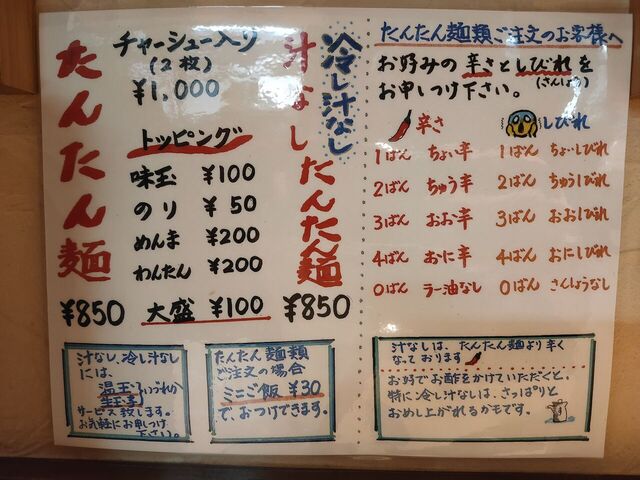 たんたん麺
¥850
チャーシュー入り
(2枚)
¥1,000
トッピング
味玉 ¥100
のり ¥50
めんま ¥200
わんたん ¥200
大盛 ¥100
冷し汁なし
汁なしたんたん麺
¥850
汁なし、冷し汁なし
には、
温玉
生玉子 いづれか
サービス致します。
お気軽にお申しつけ
下さい。
たんたん麺類
ご注文の場合
ミニご飯 ¥30
で、おつけできます。
たんたん麺類ご注文のお客様へ
お好みの辛さとしびれを
(さんしょう)
お申しつけ下さい。
辛さ しびれ
1ばん ちょい辛 1ばん ちょいしびれ
2ばん ちゅう辛 2ばん ちゅうしびれ
3ばん おお辛 3ばん おおしびれ
4ばん おに辛 4ばん おにしびれ
0ばん ラー油なし 0ばん さんしょうなし
汁なしは、たんたん麺より辛く
なっております
お好でお酢をかけていただくと、
特に冷し汁なしは、さっぱりと
おめし上がれるかもです。